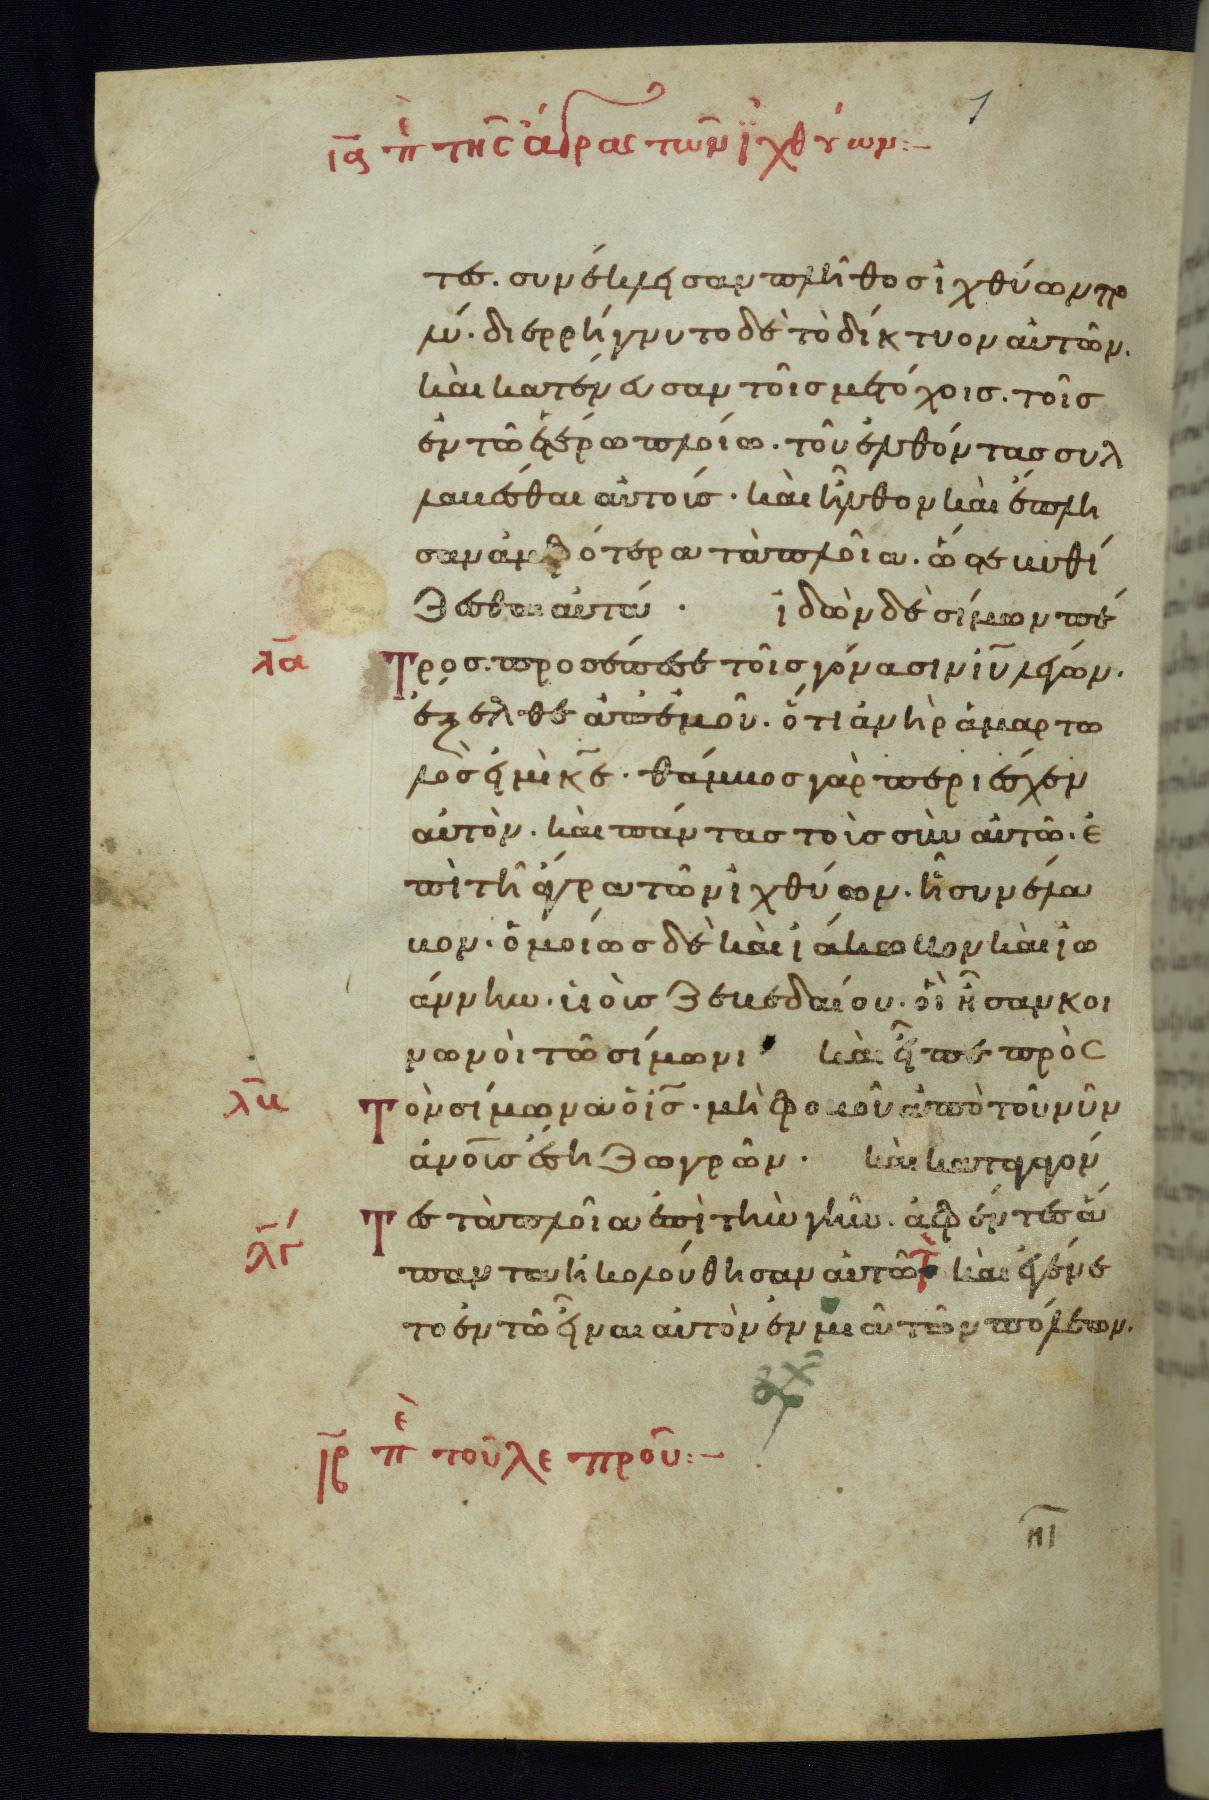 ιαʹ πὲ τῆς ἄγρας τῶν ἰχθύων:–
1
τες. συνέκλεισαν πλῆθος ἰχθύων πο
λύ. διερρήγνυτο δὲ τὸ δίκτυον αὐτῶν.
καὶ κατένευσαν τοῖς μετόχοις. τοῖς
ἐν τῶ ἑτέρω πλοίω. τοῦ ἐλθόντας συλ
λαβέσθαι αὐτοίς. καὶ ἦλθον καὶ ἔπλη
σαν ἀμφότερα τὰ πλοῖα. ὥστε βυθί
ζεσθαι αὐτά. ἰδὼν δὲ σίμων πέ
λα
Τρος. προσέπεσε τοῖς γόνασιν ιῦ λέγων.
ἔξελθε ἀπ' ἐμοῦ. ὅτι ἀνὴρ ἁμαρτω
λὸς εἰμὶ κ̅ε. θάμβος γὰρ περιέσχεν
αὐτὸν. καὶ πάντας τοὶς σὺν αὐτῶ. ἐ
πὶ τῆ ἄγρα τῶν ἰχθύων. ἧ συνέλα
βον. ὁμοίως δὲ καὶ ἰάκωβον καὶ ἰω
άννην. υἱοὶς ζεβεδαίου. οἳ ἦσαν κοι
νωνοὶ τῶ σίμωνι. καὶ εἶπε πρὸς
λβ
Τὸν σίμωνα ὁ ις̅. μὴ φοβοῦ ἀπὸ τοῦ νῦν
ἀνο̅ις ἔση ζωγρῶν. καὶ καταγαγόν
λγ
Τες τὰ πλοῖα ἐπὶ τὴν γῆν. ἀφέντες ἅ
παντα ἠκολούθησαν αὐτῶ. καὶ ἐγένε
το ἐν τῶ εἶναι αὐτὸν ἐν μιᾶ τῶν πόλεων.
ιβ πὲ τοῦ λεπροῦ:–